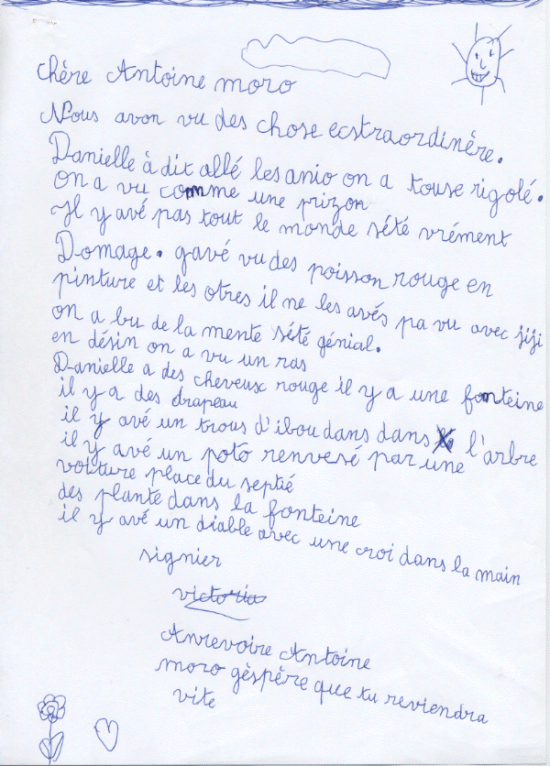 chère Antoine moro
Nous avon vu des chose ecstraordinére.
Danielle à dit allé les anio on a touse rigolé.
on a vu comme une prizon
Il y avé pas tout le monde sété vrément
Domage. gavé vu des poisson rouge en
pinture et les otres il ne les avés pa vu avec jiji
on a bu de la mente sété génial.
en désin on a vu un ras
Danielle a des cheveux rouge il y a une fonteine
il y a des drapeau
il y avé un trous d'ibou dans dans l'arbre
il y avé un poto renvesé par une
voiture place du septié
des plante dans la fonteine
il y avé un diable avec une croi dans la main
signier
victoria
Anrevoire Antoine
moro gèspère que tu reviendra
vite